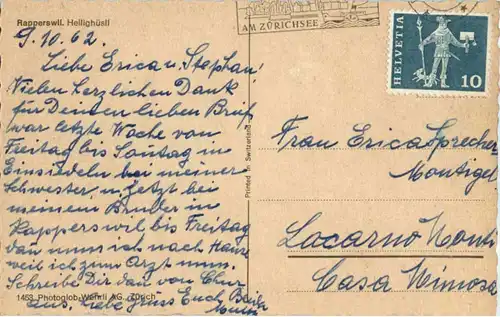 Rapperswil. Heilighüsli
9.10.62.
Liebe Erica u. Stephan!
Vielen herzlichen Dank
für Deinen lieben Brief
war letzte Woche von
Freitag bis Sontag in
Einsiedeln bei meiner
Schwester u. jetzt bei
meinem Bruder in
Rapperswil bis Freitag
dan muss ich nach Hause
weil ich zum Arzt muss.
Schreibe Dir dan von Chur
aus. Liebe Grüss Euch Beide
1453 Photoglob-Wehrli AG. Zürich
Printed in Switzerland
AM ZÜRICHSEE
HELVETIA
10
Frau Erica Sprecher
Montigel
Locarno Monti
Casa Mimosa